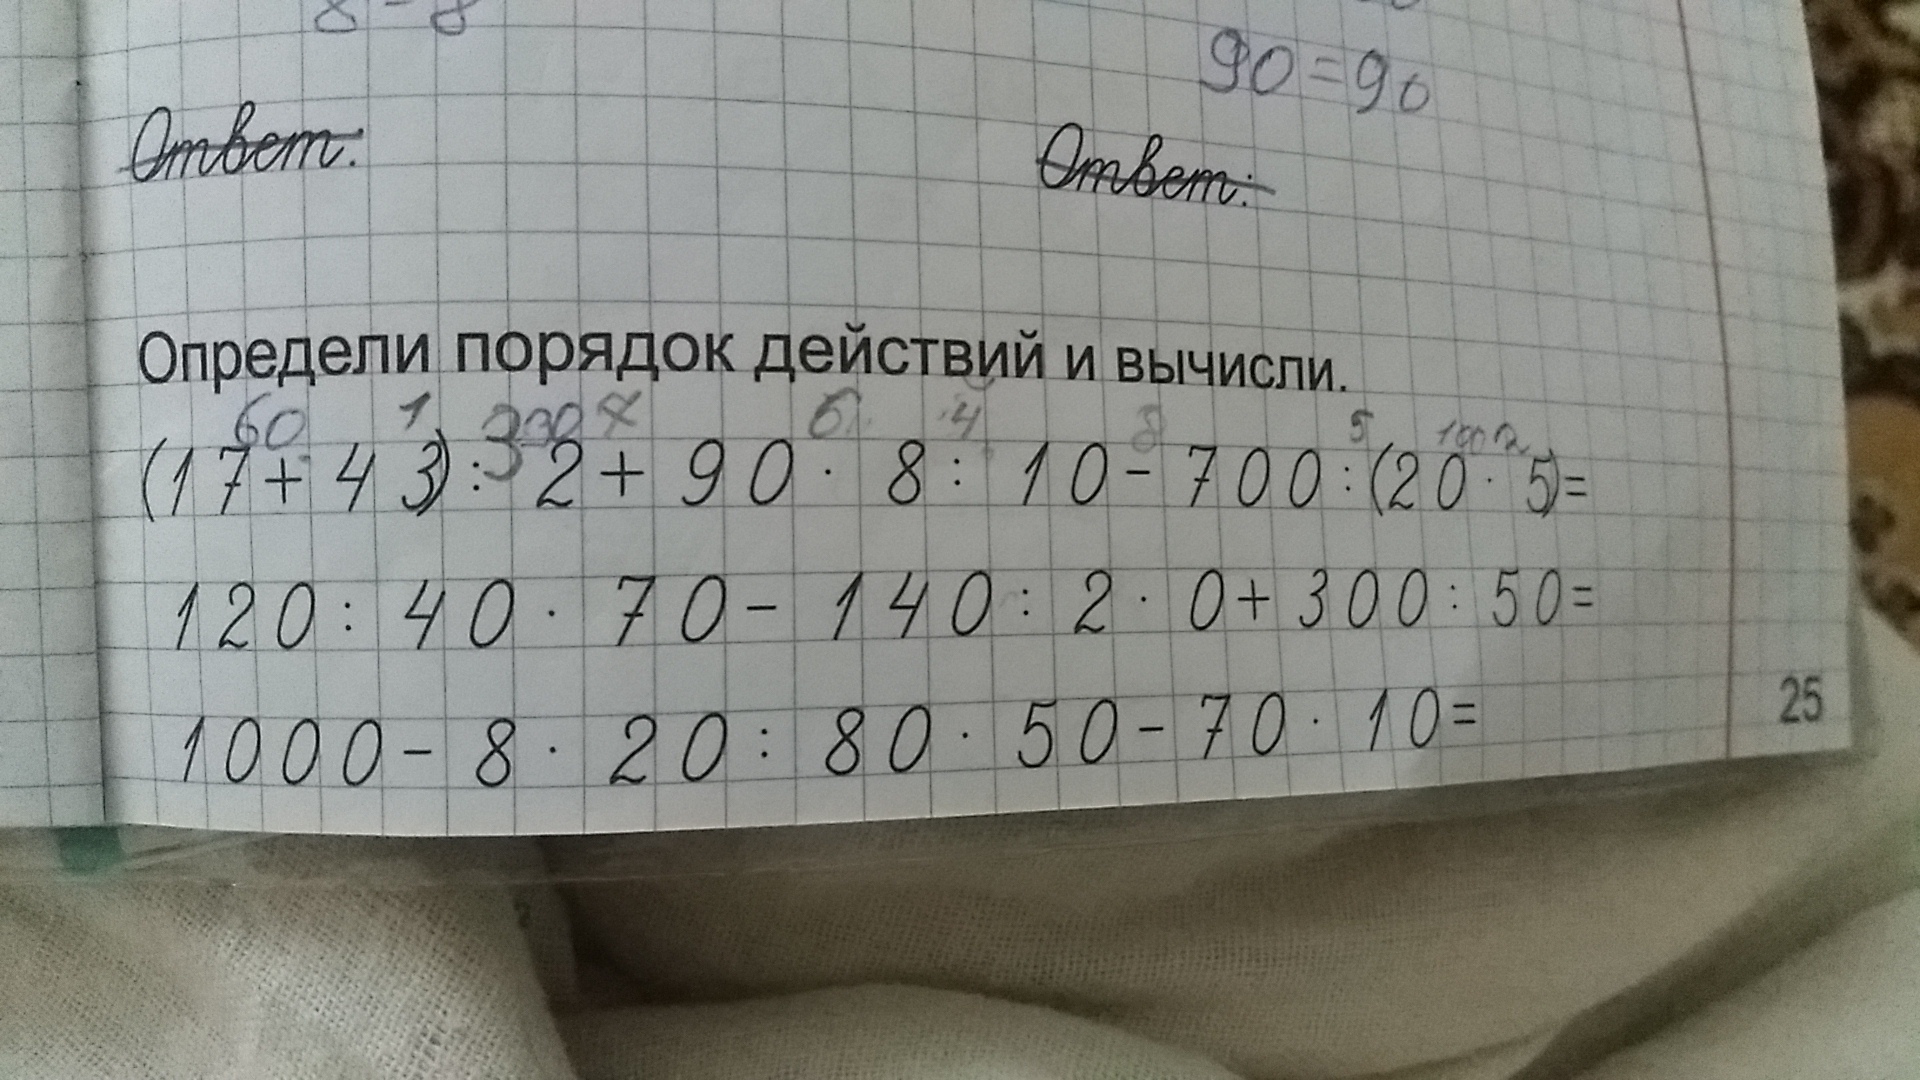 8 = 8
90=90
Ответ:
Ответ:
Определи порядок действий и вычисли.
60 1 3 4 5 100 2
(17+43):2+90·8:10-700:(20·5)=
120:40·70-140:2·0+300:50=
1000-8·20:80·50-70·10=
25